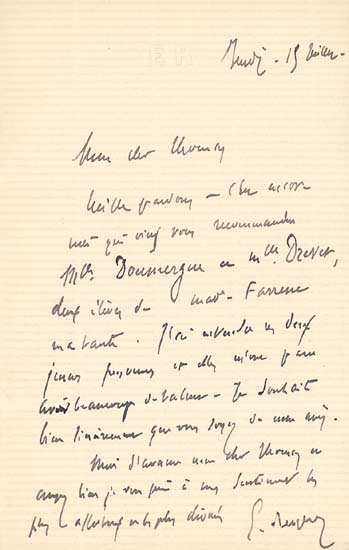 Jeudi - 15 Juillet -
Mon cher Thomy
Mille pardons - C'est encore
moi qui viens vous recommander
Mlle Doumergue et Mlle Drevet,
deux élèves de mad. Farrenc
ma tante. J'ai entendu ces deux
jeunes personnes et elles m'ont paru
avoir beaucoup de talent - Je souhaite
bien sincèrement que vous soyez de mon avis.
Merci d'avance mon cher Thomy et
croyez bien je vous prie à mes sentiments les
plus affectueux et les plus dévoués
E. Reyer